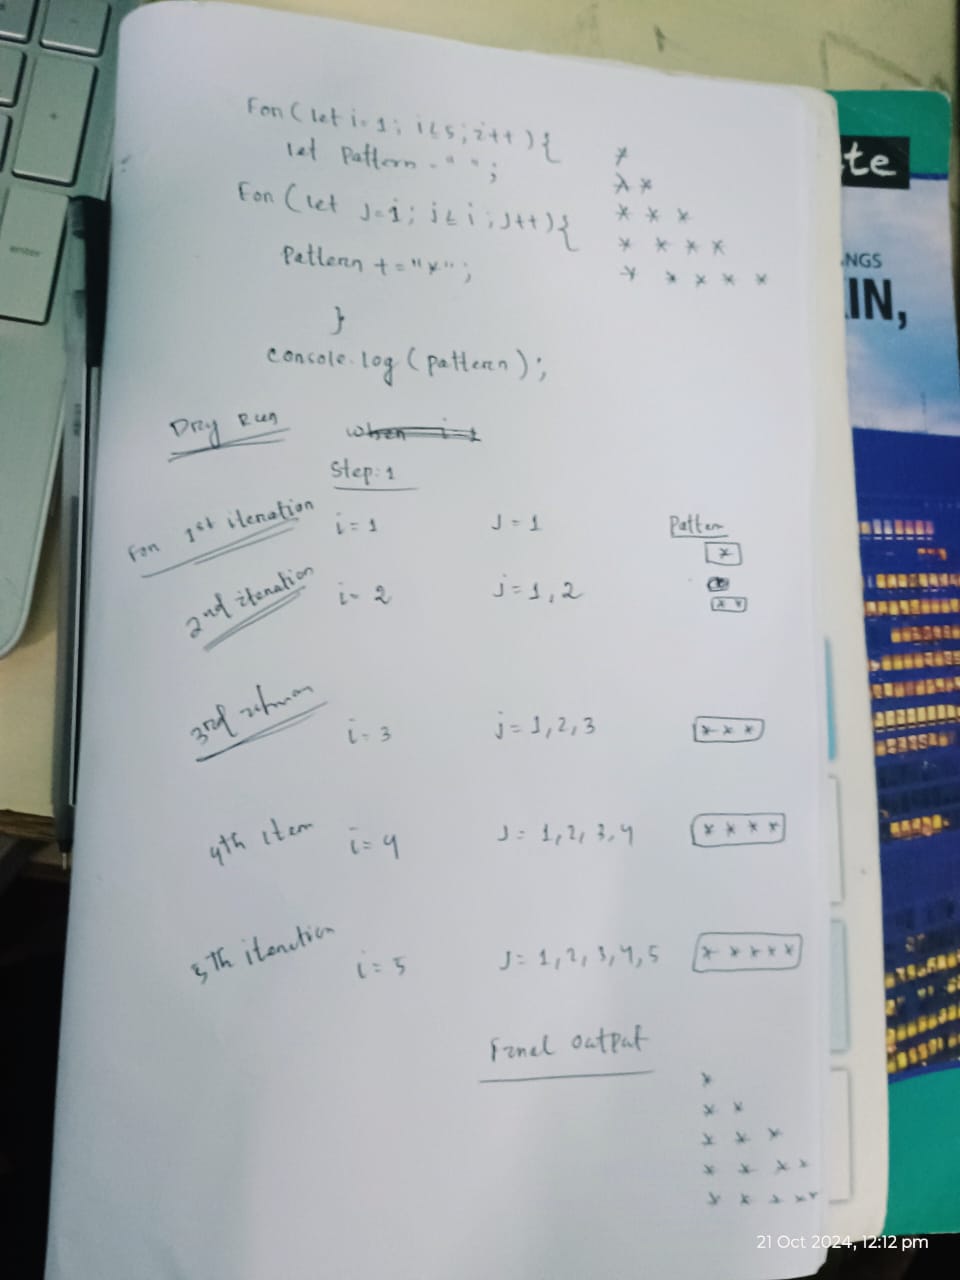 For (let i=1; i≤5; i++){
let Pattern = " ";
For (let J=1; j≤i; J++){
Pattern += "*";
}
console.log (pattern);
*
* *
* * *
* * * *
* * * * *
Dry Run
when i=1
Step:1
For 1st iteration i=1 J=1 Pattern
*
2nd iteration i=2 j=1,2
* *
3rd i=3 j=1,2,3 * * *
4th item i=4 J=1,2,3,4 * * * *
5th iteration i=5 J=1,2,3,4,5 * * * * *
Final output
*
* *
* * *
* * * *
* * * * *
te
NGS
IN,
enter
21 Oct 2024, 12:12 pm